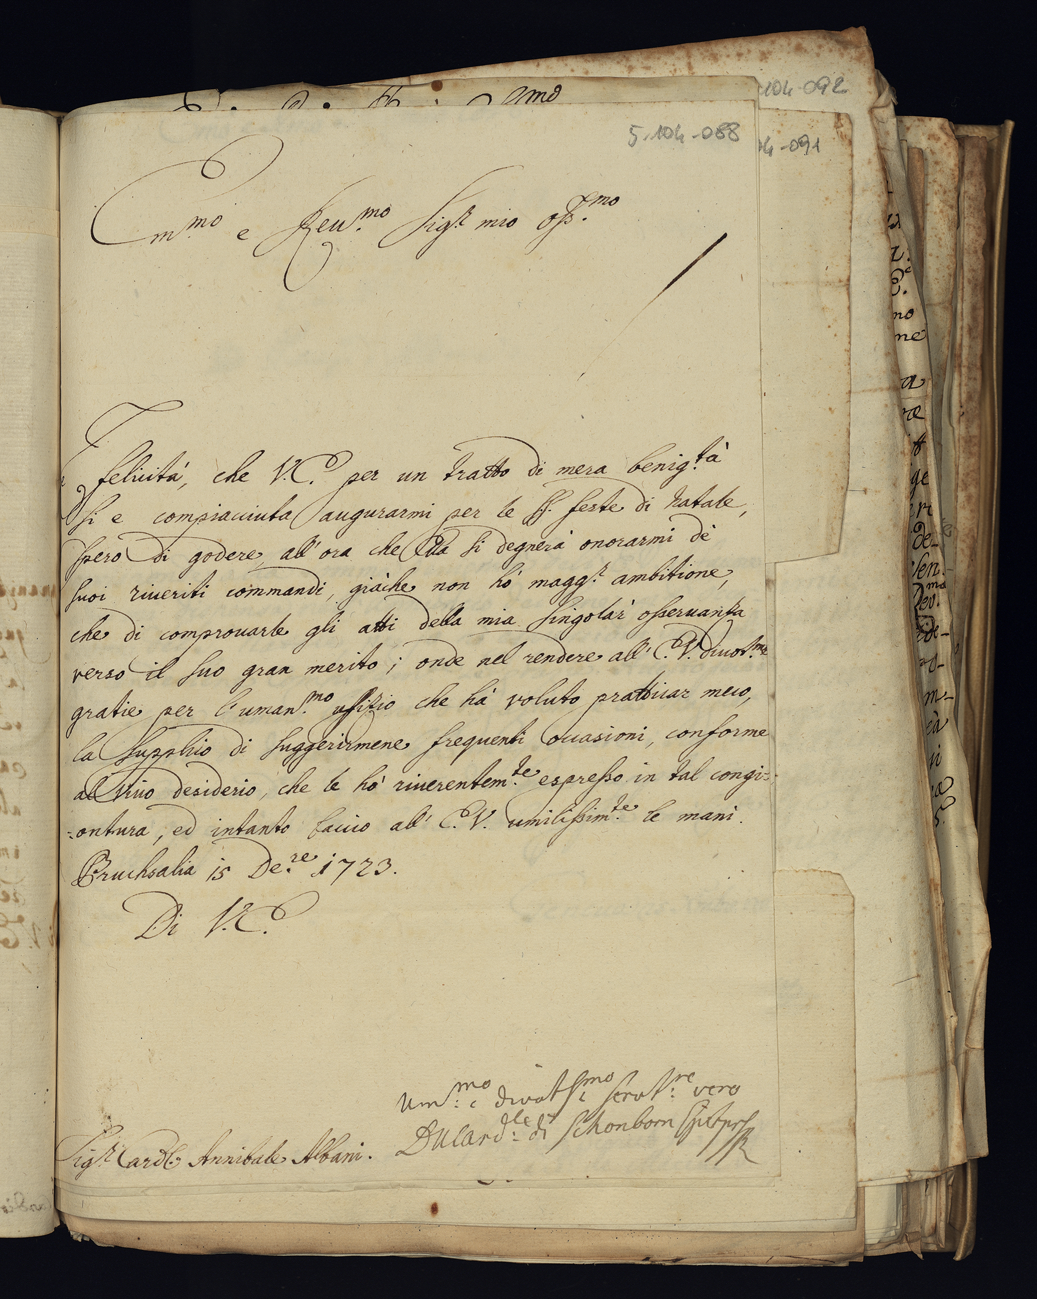 5-104-088
104-092
04-091
Em.mo e Reu.mo Sig.r mio oss.mo
Le felicità, che V.E. per un tratto di mera benig.tà
si e compiacciuta augurarmi per le SS. feste di Natale,
spero di godere, all'ora che Ella si degnerà onorarmi de
suoi riueriti commandi, giàche non hò magg.r ambitione,
che di comprouarle gli atti della mia singolar osseruanza
verso il suo gran merito; onde nel rendere all' E.V. diuot.me
gratie per l'uman.mo uffizio che hà voluto pratticar meco,
la supplico di suggerirmene frequenti occasioni, conforme
al viuo desiderio, che le hò riuerentem.te espresso in tal congi=
=ontura, ed intanto baccio all' E.V. umilissim.te le mani.
Bruchsalia 15 De.re 1723.
Di V.E.
um.mo e divot.smo servt.re vero
DHCard.le di Schonborn
Sig.r Card.l Annibale Albani.